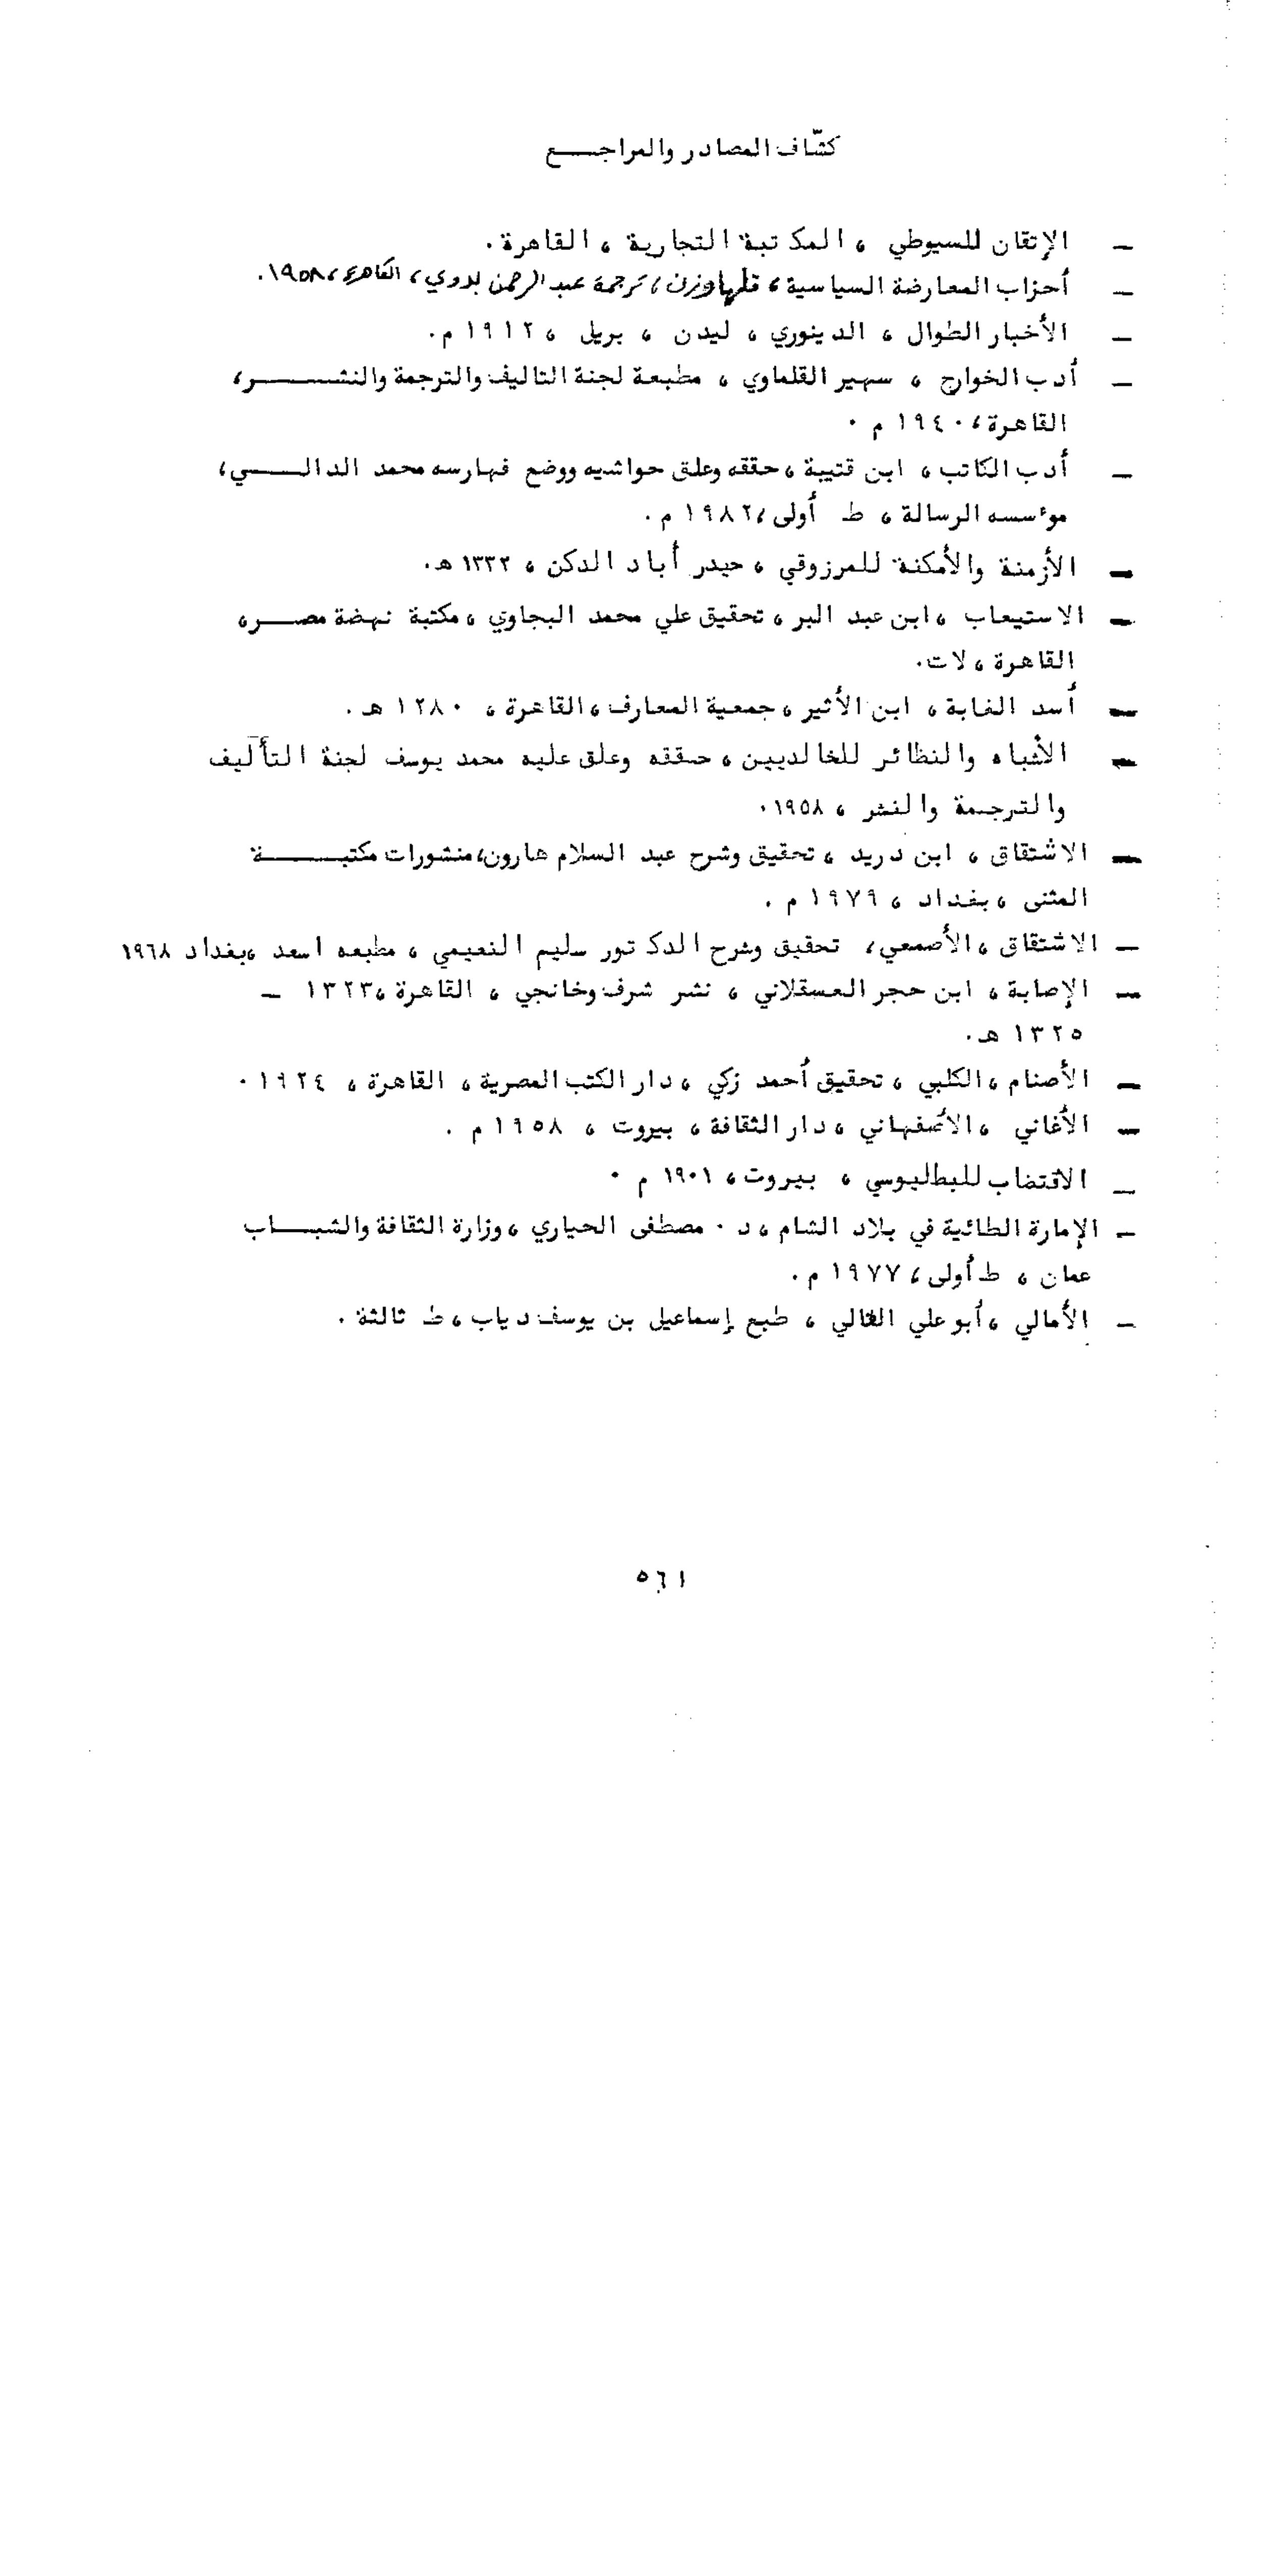 كشّاف المصادر والمراجع
— الإتقان للسيوطي ، المكتبة التجارية ، القاهرة .
— أحزاب المعارضة السياسية ، فلهاوزن ، ترجمة عبد الرحمن بدوي ، القاهرة ، ١٩٥٨.
— الأخبار الطوال ، الدينوري ، ليدن ، بريل ، ١٩١٢ م .
— أدب الخوارج ، سهير القلماوي ، مطبعة لجنة التاليف والترجمة والنشر،
القاهرة ، ١٩٤٠ م .
— أدب الكاتب ، ابن قتيبة ، حققه وعلق حواشيه ووضع فهارسه محمد الدالي،
موءسسه الرسالة ، ط أولى ، ١٩٨٢ م .
— الأزمنة والأمكنة للمرزوقي ، حيدر أباد الدكن ، ١٣٣٢ هـ.
— الاستيعاب ، ابن عبد البر ، تحقيق علي محمد البجاوي ، مكتبة نهضة مصر،
القاهرة ، لات.
— أسد الغابة ، ابن الأثير ، جمعية المعارف ، القاهرة ، ١٢٨٠ هـ .
— الأشباه والنظائر للخالديين ، حققه وعلق عليه محمد يوسف لجنة التأليف
والترجمة والنشر ، ١٩٥٨.
— الاشتقاق ، ابن دريد ، تحقيق وشرح عبد السلام هارون، منشورات مكتبة
المثنى ، بغداد ، ١٩٧٩ م .
— الاشتقاق ، الأصمعي، تحقيق وشرح الدكتور سليم النعيمي ، مطبعه اسعد ،بغداد ١٩٦٨
— الإصابة ، ابن حجر العسقلاني ، نشر شرف وخانجي ، القاهرة ، ١٣٢٣ —
١٣٢٥ هـ.
— الأصنام ، الكلبي ، تحقيق أحمد زكي ، دار الكتب المصرية ، القاهرة ، ١٩٢٤ .
— الأغاني ، الأصفهاني ، دار الثقافة ، بيروت ، ١٩٥٨ م .
— الاقتضاب للبطليوسي ، بيروت ، ١٩٠١ م .
— الإمارة الطائية في بلاد الشام ، د . مصطفى الحياري ، وزارة الثقافة والشباب
عمان ، ط أولى ، ١٩٧٧ م .
— الأمالي ، أبو علي القالي ، طبع إسماعيل بن يوسف دياب ، ط ثالثة .
٥٦١